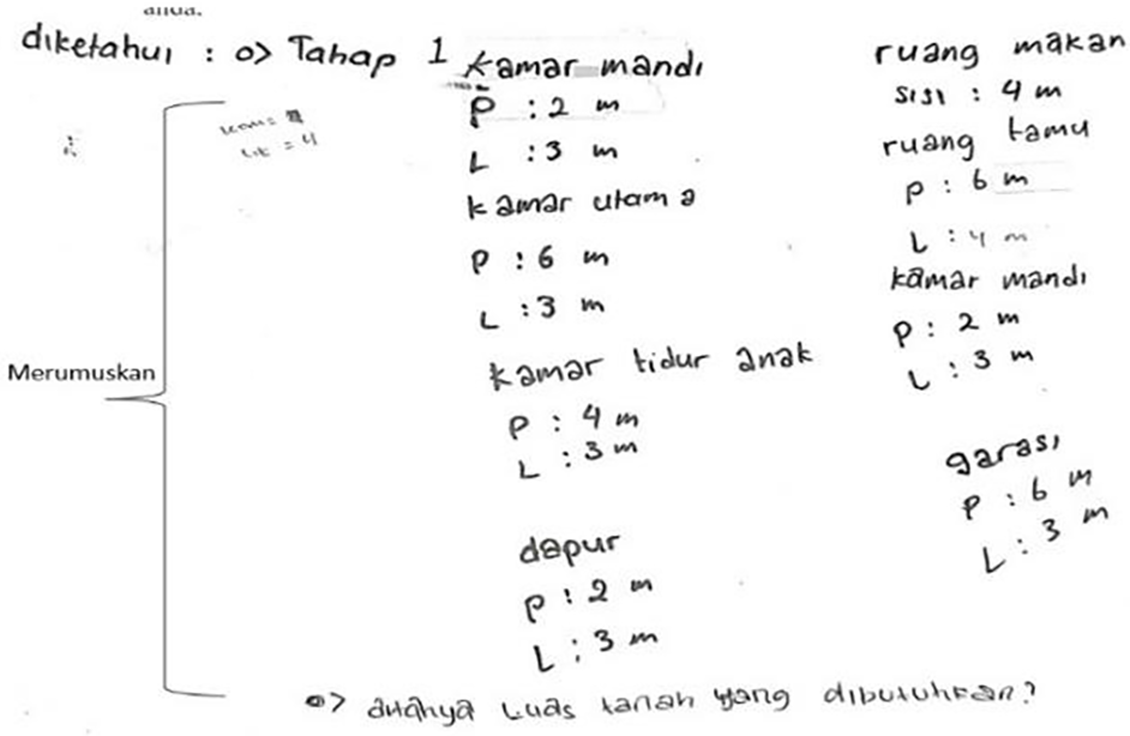 anda.
diketahui : o> Tahap 1
kamar mandi
P : 2 m
L : 3 m
kamar utama
P : 6 m
L : 3 m
kamar tidur anak
P : 4 m
L : 3 m
dapur
P : 2 m
L : 3 m
ruang makan
sisi : 4 m
ruang tamu
P : 6 m
L : 4 m
kamar mandi
P : 2 m
L : 3 m
garasi
P : 6 m
L : 3 m
Merumuskan
o> Luas tanah yang dibutuhkan?